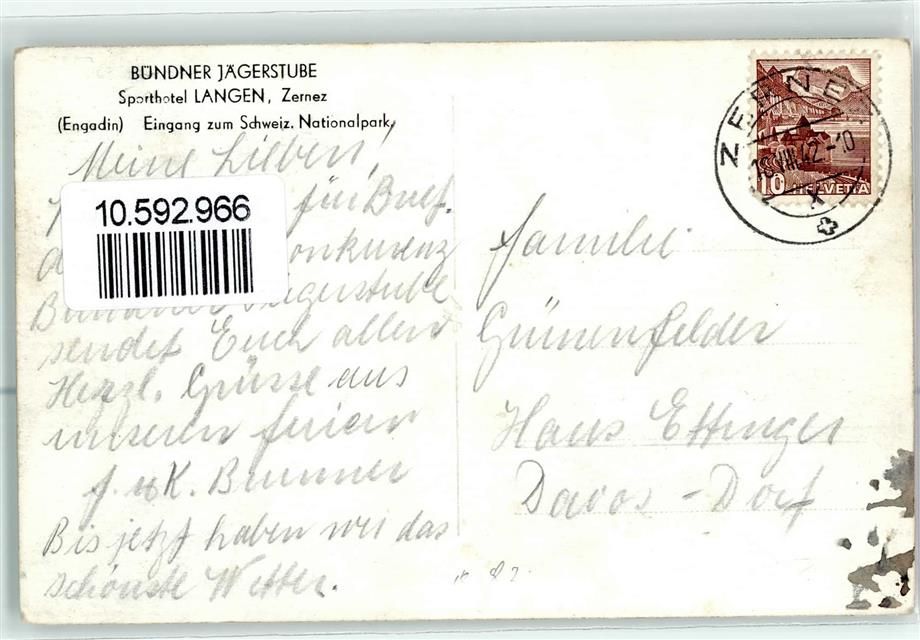 BÜNDNER JÄGERSTUBE
Sporthotel LANGEN, Zernez
(Engadin) Eingang zum Schweiz. Nationalpark
Meine Lieben!
für
10.592.966
onkurenz
sendet Euch allen
Herzl. Grüsse aus
unseren ferien
f. u K. Brunner
Bis jetzt haben wir das
schönste Wetter.
ZERNEZ
VIII.42.-10
10 HELVETIA
familie
Grünenfelder
Haus Ettinger
Davos-Dorf